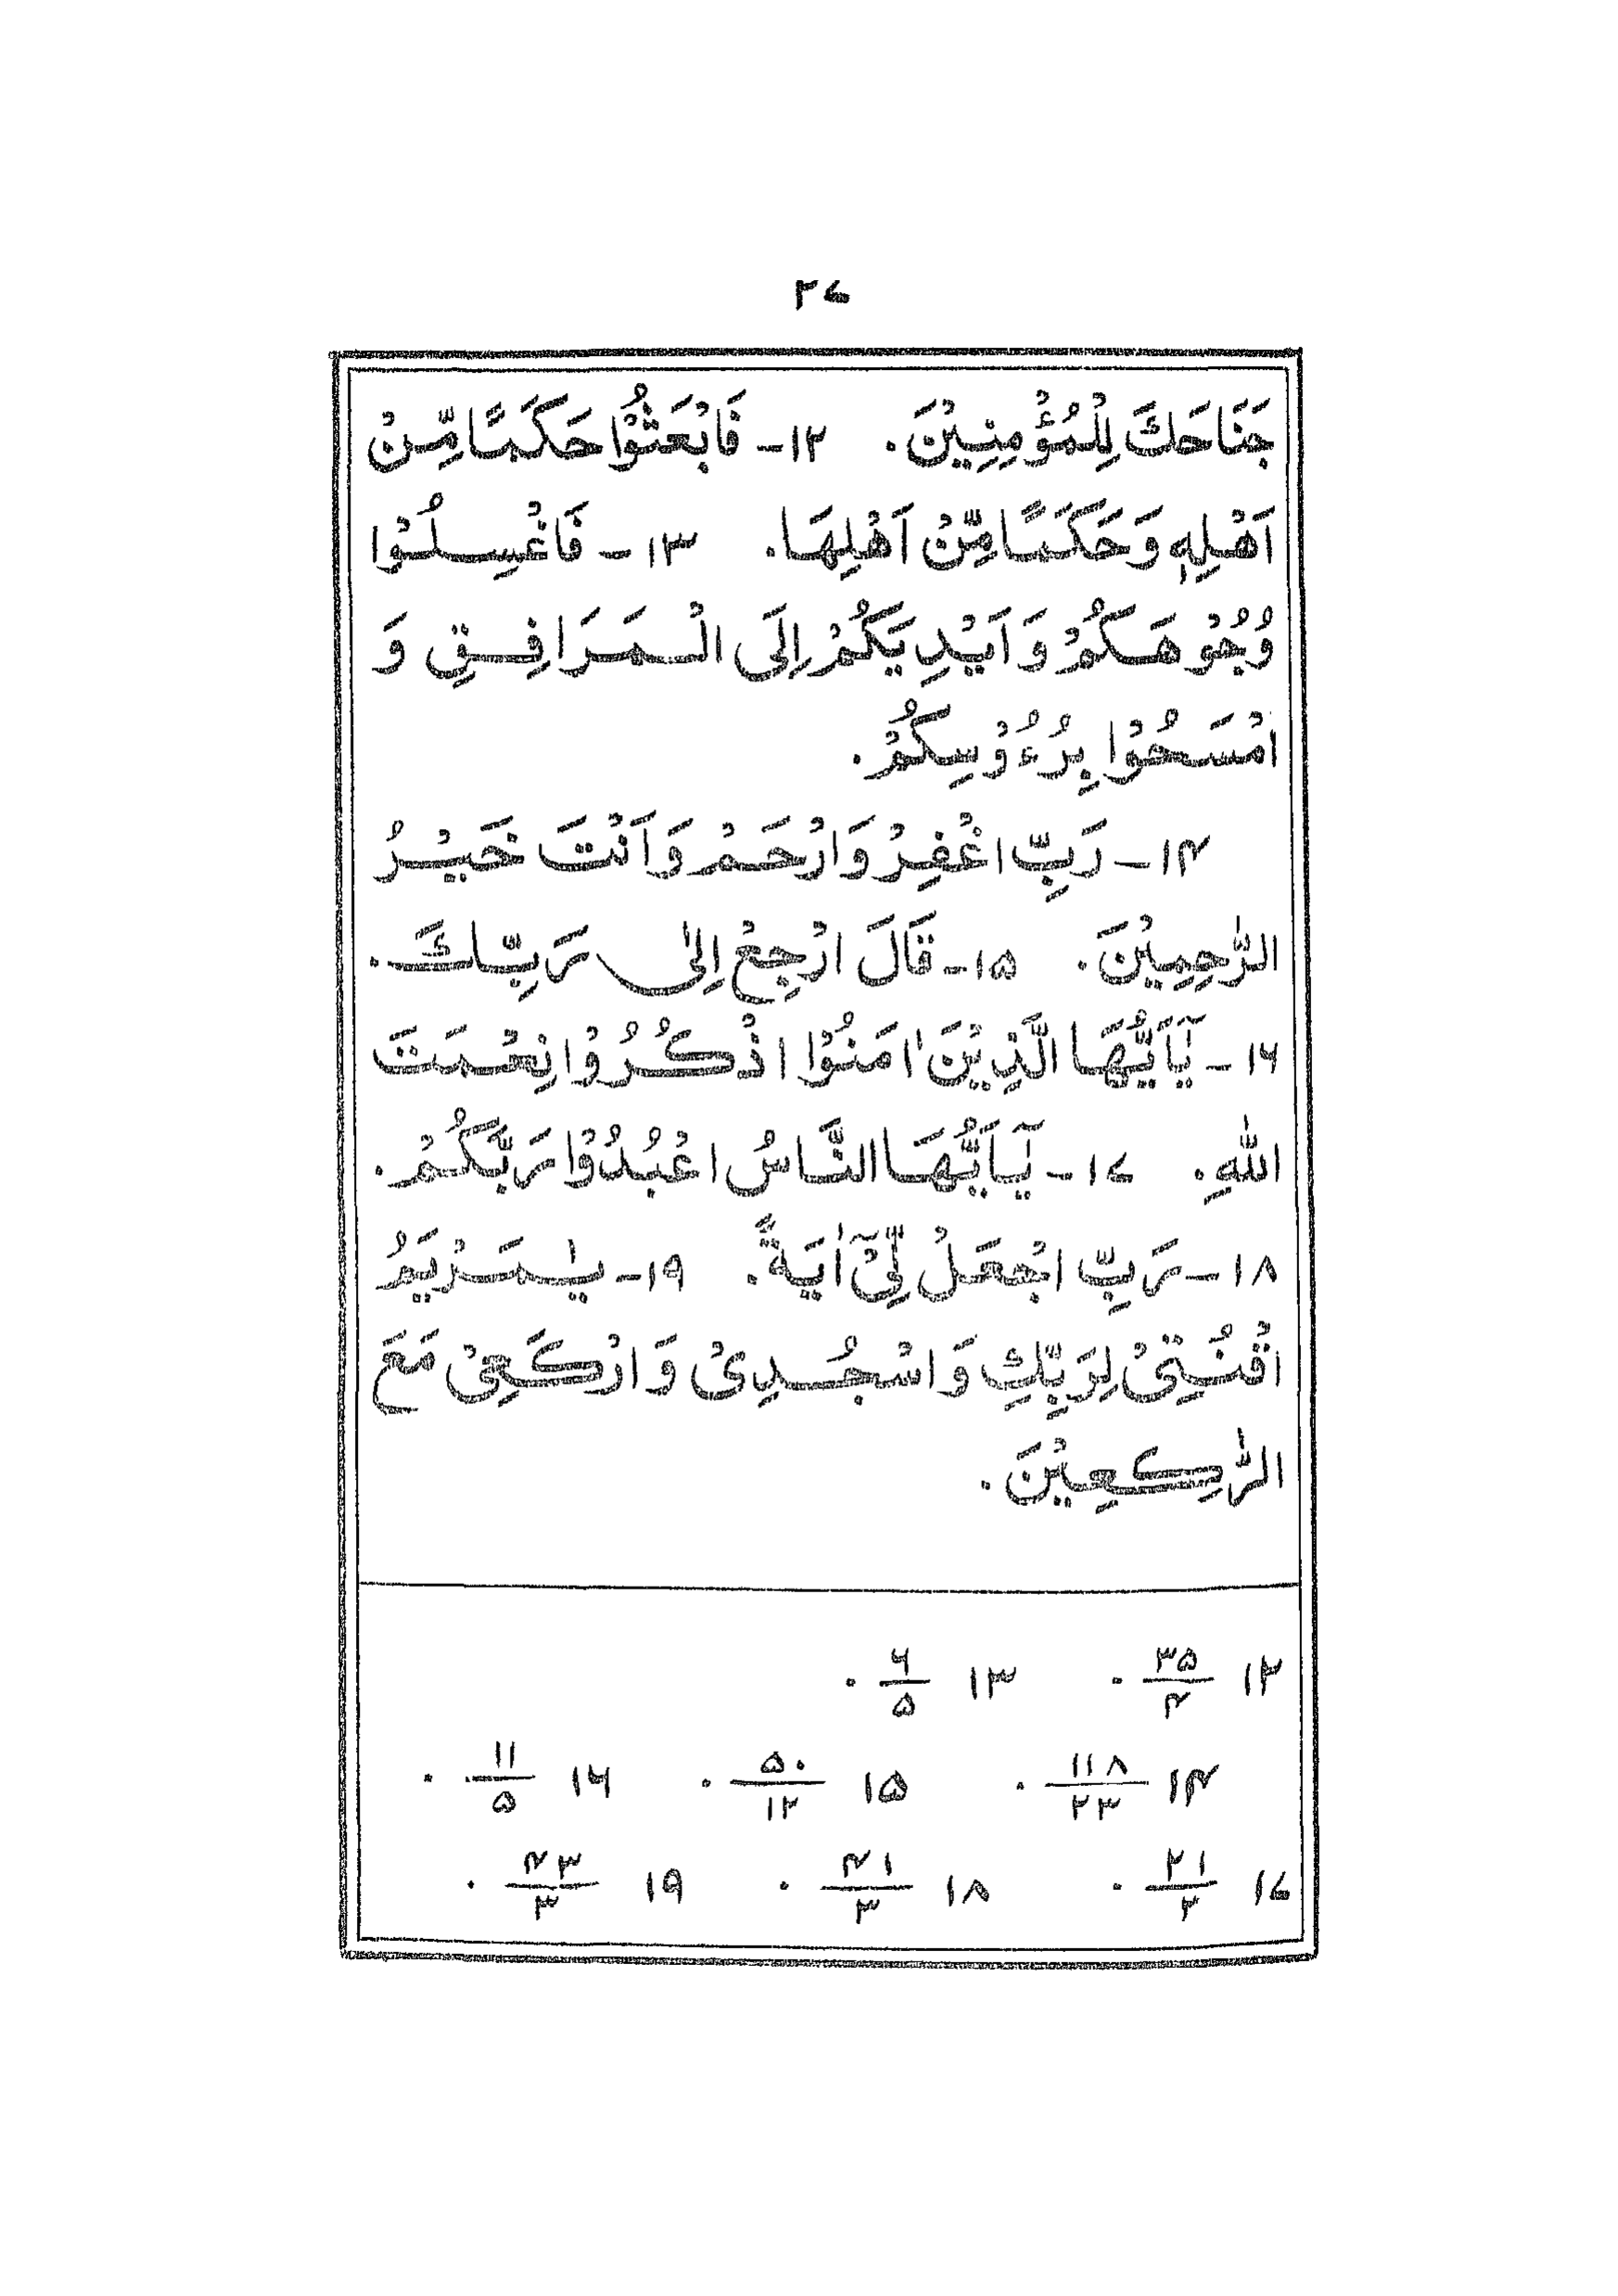 ۲۷
جَنَاحَكَ لِلْمُؤْمِنِيْنَ. ۱۲- فَابْعَثُوْا حَكَمًا مِّنْ
اَهْلِهٖ وَحَكَمًا مِّنْ اَهْلِهَا. ۱۳- فَاغْسِلُوْا
وُجُوْهَكُمْ وَاَيْدِيَكُمْ اِلَى الْمَرَافِقِ وَ
امْسَحُوْا بِرُءُوْسِكُمْ.
۱۴- رَبِّ اغْفِرْ وَارْحَمْ وَاَنْتَ خَيْرُ
الرّٰحِمِيْنَ. ۱۵- قَالَ ارْجِعْ اِلٰى رَبِّكَ.
۱۶- يٰٓاَيُّهَا الَّذِيْنَ اٰمَنُوْا اذْكُرُوْا نِعْمَتَ
اللّٰهِ. ۱۷- يٰٓاَيُّهَا النَّاسُ اعْبُدُوْا رَبَّكُمْ.
۱۸- رَبِّ اجْعَلْ لِّيْٓ اٰيَةً. ۱۹- يٰمَرْيَمُ
اقْنُتِيْ لِرَبِّكِ وَاسْجُدِيْ وَارْكَعِيْ مَعَ
الرّٰكِعِيْنَ.
۱۲ ۳۵/۴ . ۱۳ ۶/۵ .
۱۴ ۱۱۸/۲۳ . ۱۵ ۵۰/۱۲ . ۱۶ ۱۱/۵ .
۱۷ ۲۱/۲ . ۱۸ ۴۱/۳ . ۱۹ ۴۳/۳ .